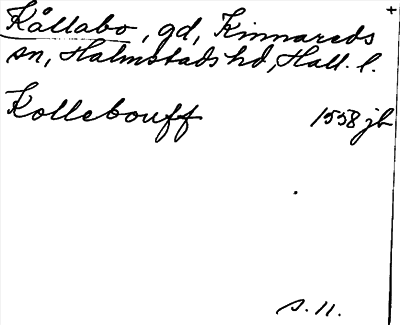 Kållabo, gd, Kinnareds +
sn, Halmstads hd, Hall. l.
Kollebouff 1558 jb
s. 11.